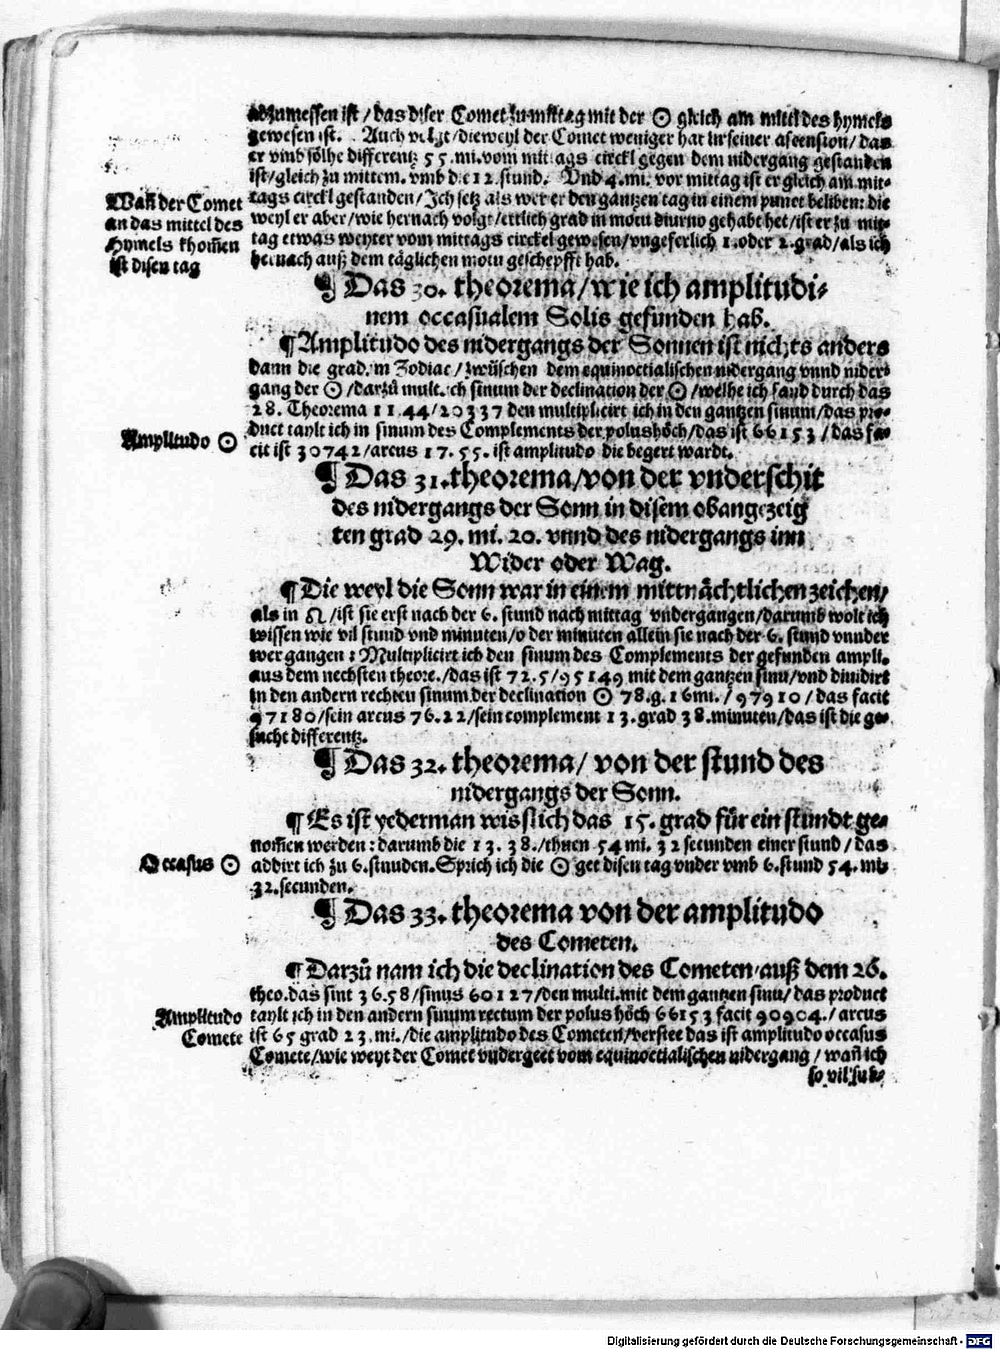 abzumessen ist / das diser Comet zu mittag mit der ☉ gleich am mittl des hymels
gewesen ist. Auch dieweyl der Comet weniger hat in seiner ascension / das
er vmb sölhe differentz 55. mi. vom mittags circkl gegen dem nidergang gestanden
ist / gleich zu mittem. vmb die 12. stund. Vnd 4. mi. vor mittag ist er gleich am mit-
tags circkl gestanden / Ich setz als wer er den gantzen tag in einem punct beliben: die
weyl er aber / wie hernach volgt / ettlich grad in motu diurno gehabt het / ist er zu mit-
tag etwas weyter vom mittags circkel gewesen / vngeferlich 1. oder 2. grad / als ich
hernach auß dem täglichen motu geschepfft hab.
Wañ der Comet
an das mittel des
Hymels khom̃en
ist disen tag
¶ Das 30. theorema / wie ich amplitudi-
nem occasualem Solis gefunden hab.
¶ Amplitudo des nidergangs der Sonnen ist nichts anders
dann die grad im Zodiac / zwüschen dem equinoctialischen nidergang vnnd nider-
gang der ☉ / darzů mult. ich sinum der declination der ☉ / welhe ich fand durch das
28. Theorema 11.44 / 20337 den multiplicirt ich in den gantzen sinum / das pro-
duct taylt ich in sinum des Complements der polushöch / das ist 66153 / das fa-
cit ist 30742 / arcus 17. 55. ist amplitudo die begert wardt.
Amplitudo ☉
¶ Das 31. theorema / von der vnderschit
des nidergangs der Sonn in disem obangezeig
ten grad 29. mi. 20. vnnd des nidergangs inn
Wider oder Wag.
¶ Die weyl die Sonn war in einem mittnächtlichen zeichen /
als in ♌ / ist sie erst nach der 6. stund nach mittag vndergangen / darumb wolt ich
wissen wie vil stund vnd minuten / o der minuten allein sie nach der 6. stund vnnder
wer gangen: Multiplicirt ich den sinum des Complements der gefunden ampli.
aus dem nechsten theore. / das ist 72.5 / 95149 mit dem gantzen sinu / vnd diuidirt
in den andern rechten sinum der declination ☉ 78. g. 16 mi. / 97910 / das facit
97180 / sein arcus 76.22 / sein complement 13. grad 38. minuten / das ist die ge-
sucht differentz.
¶ Das 32. theorema / von der stund des
nidergangs der Sonn.
¶ Es ist yederman wisslich das 15. grad für ein stundt ge-
nom̃en werden: darumb die 13. 38. / thuen 54 mi. 32 secunden einer stund / das
addirt ich zu 6. stnuden. Sprich ich die ☉ get disen tag vnder vmb 6. stund 54. mi.
32. secunden.
Occasus ☉
¶ Das 33. theorema von der amplitudo
des Cometen.
¶ Darzů nam ich die declination des Cometen / auß dem 26.
theo. das sint 36.58 / sinus 60127 / den multi. mit dem gantzen sinu / das product
taylt ich in den andern sinum rectum der polus höch 66153 facit 90904. / arcus
ist 65 grad 23. mi. / die amplitudo des Cometen / verstee das ist amplitudo occasus
Comete / wie weyt der Comet vndergeet vom equinoctialischen nidergang / wañ ich
Amplitudo
Comete
so vil
Digitalisierung gefördert durch die Deutsche Forschungsgemeinschaft - DFG